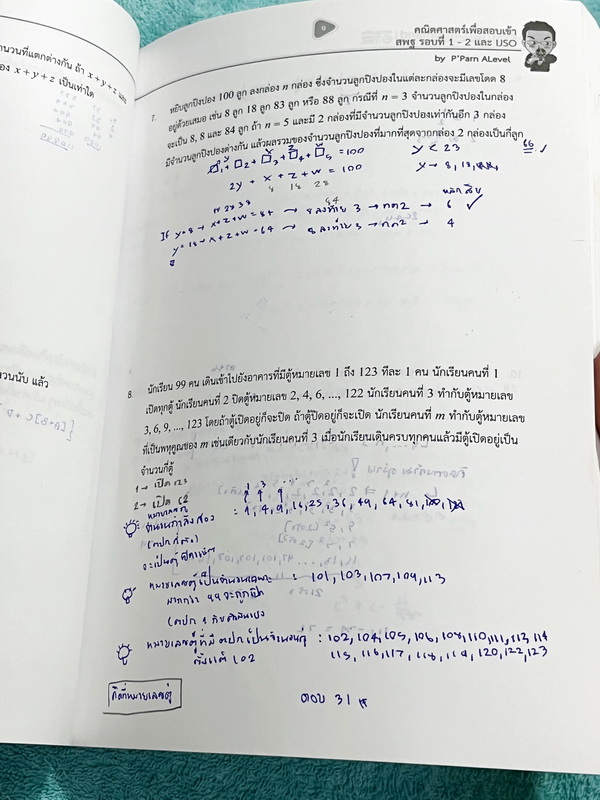 จำนวนที่แตกต่างกัน ถ้า x + y + z
x + y + z เป็นเท่าใด
คณิตศาสตร์เพื่อสอบเข้า
สพฐ รอบที่ 1 - 2 และ IJSO
by P'Parn ALevel
7. หยิบลูกปิงปอง 100 ลูก ลงกล่อง n กล่อง ซึ่งจำนวนลูกปิงปองในแต่ละกล่องจะมีเลขโดด 8
อยู่ด้วยเสมอ เช่น 8 ลูก 18 ลูก 83 ลูก หรือ 88 ลูก กรณีที่ n = 3 จำนวนลูกปิงปองในกล่อง
จะเป็น 8, 8 และ 84 ลูก ถ้า n = 5 และมี 2 กล่องที่มีจำนวนลูกปิงปองเท่ากันอีก 3 กล่อง
มีจำนวนลูกปิงปองต่างกัน แล้วผลรวมของจำนวนลูกปิงปองที่มากที่สุดจากกล่อง 2 กล่องเป็นกี่ลูก
66
= 100
y < 23
2y + x + z + w = 100
y → 8, 18,
8 18 28
หลักสิบ
If y = 8 → x + z + w = 84 → 8 ลงท้าย 3 → → 6 ✓
y = 18 → x + z + w = 64 → 8 ลงท้าย 3 → → 4
นวนนับ แล้ว
8. นักเรียน 99 คน เดินเข้าไปยังอาคารที่มีตู้หมายเลข 1 ถึง 123 ทีละ 1 คน นักเรียนคนที่ 1
เปิดทุกตู้ นักเรียนคนที่ 2 ปิดตู้หมายเลข 2, 4, 6, ..., 122 นักเรียนคนที่ 3 ทำกับตู้หมายเลข
3, 6, 9, ..., 123 โดยถ้าตู้เปิดอยู่ก็จะปิด ถ้าตู้ปิดอยู่ก็จะเปิด นักเรียนคนที่ m ทำกับตู้หมายเลข
ที่เป็นพหุคูณของ m เช่นเดียวกับนักเรียนคนที่ 3 เมื่อนักเรียนเดินครบทุกคนแล้วมีตู้เปิดอยู่เป็น
จำนวนกี่ตู้
1 → เปิด 123
2 → เปิด 62
1 3 ...
หมายเลขตู้
จำนวนกำลังสอง : 1, 4, 9, 16, 25, 36, 49, 64, 81,
จะเป็นตู้
หมายเลขตู้เป็นจำนวนเฉพาะ : 101, 103, 107, 109, 113
มากกว่า 99 จะถูกเปิด
หมายเลขตู้ที่มี ตปก. เป็นจำนวนคู่ : 102, 104, 105, 106, 108, 110, 111, 113, 114
ตั้งแต่ 102
115, 116, 117, 118, 119, 120, 122, 123
คิดที่หมายเลขตู้
ตอบ 31